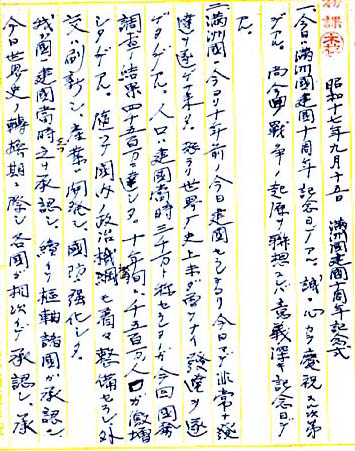 昭和十七年九月十五日 満洲国建国十周年記念式
一、今日ハ満洲国建国十周年記念日デアル、誠ニ心カラ慶祝スル次第
デアル。尚今回戦争ノ起原ヲ聯想スレバ意義深キ記念日デ
アル。
二、満洲国ハ今ヨリ十年前ノ今日建国セラレタリ今日マデ非常ナ発
達ヲ遂ゲテ来タ。恐ラク世界ノ史上未ダ曽テナイ発達ヲ遂
ゲタノデアル。人口ハ建国当時三千万ト称セラレタガ今回国勢
調査ノ結果四千五百万ニ達シタ。十年間ニ千五百万ノ人口ガ激増
シタノデアル。随テ国内政治機構モ着々整備セラレ外
交ハ刷新シ、産業ハ開発シ国防強化シタ。
我ガ国ハ建国当時直ニ承認シ、続イテ枢軸諸国ガ承認シ
今日世界史ノ転換期ニ際シ各国ガ相次イデ承認シ、承